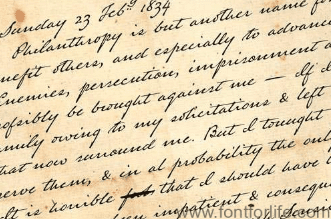 Sunday 23 Feb.y 1834
Philanthropy is but another name f
nefit others, and especially to advance
Enemies, persecution, imprisonment a
ossibly be brought against me — If I
amily owing to my solicitations & left
hat now surround me. But I tought
erve them, & in al probability the onl
It is horrible that I should have
been impatient & consequ
www.fontforlife.com